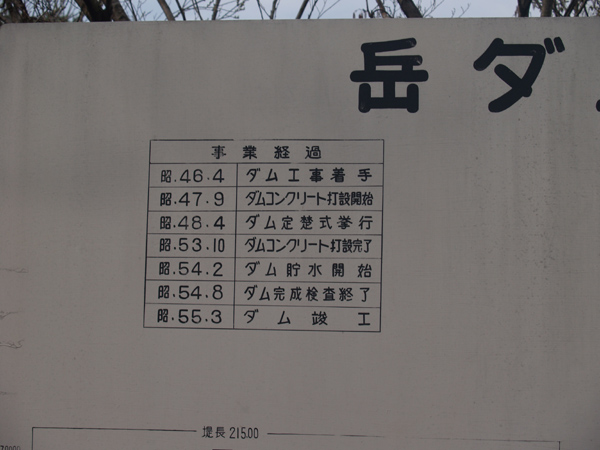 岳ダ
事業経過
昭.46.4 ダム工事着手
昭.47.9 ダムコンクリート打設開始
昭.48.4 ダム定楚式挙行
昭.53.10 ダムコンクリート打設完了
昭.54.2 ダム貯水開始
昭.54.8 ダム完成検査終了
昭.55.3 ダム竣工
堤長 215.00